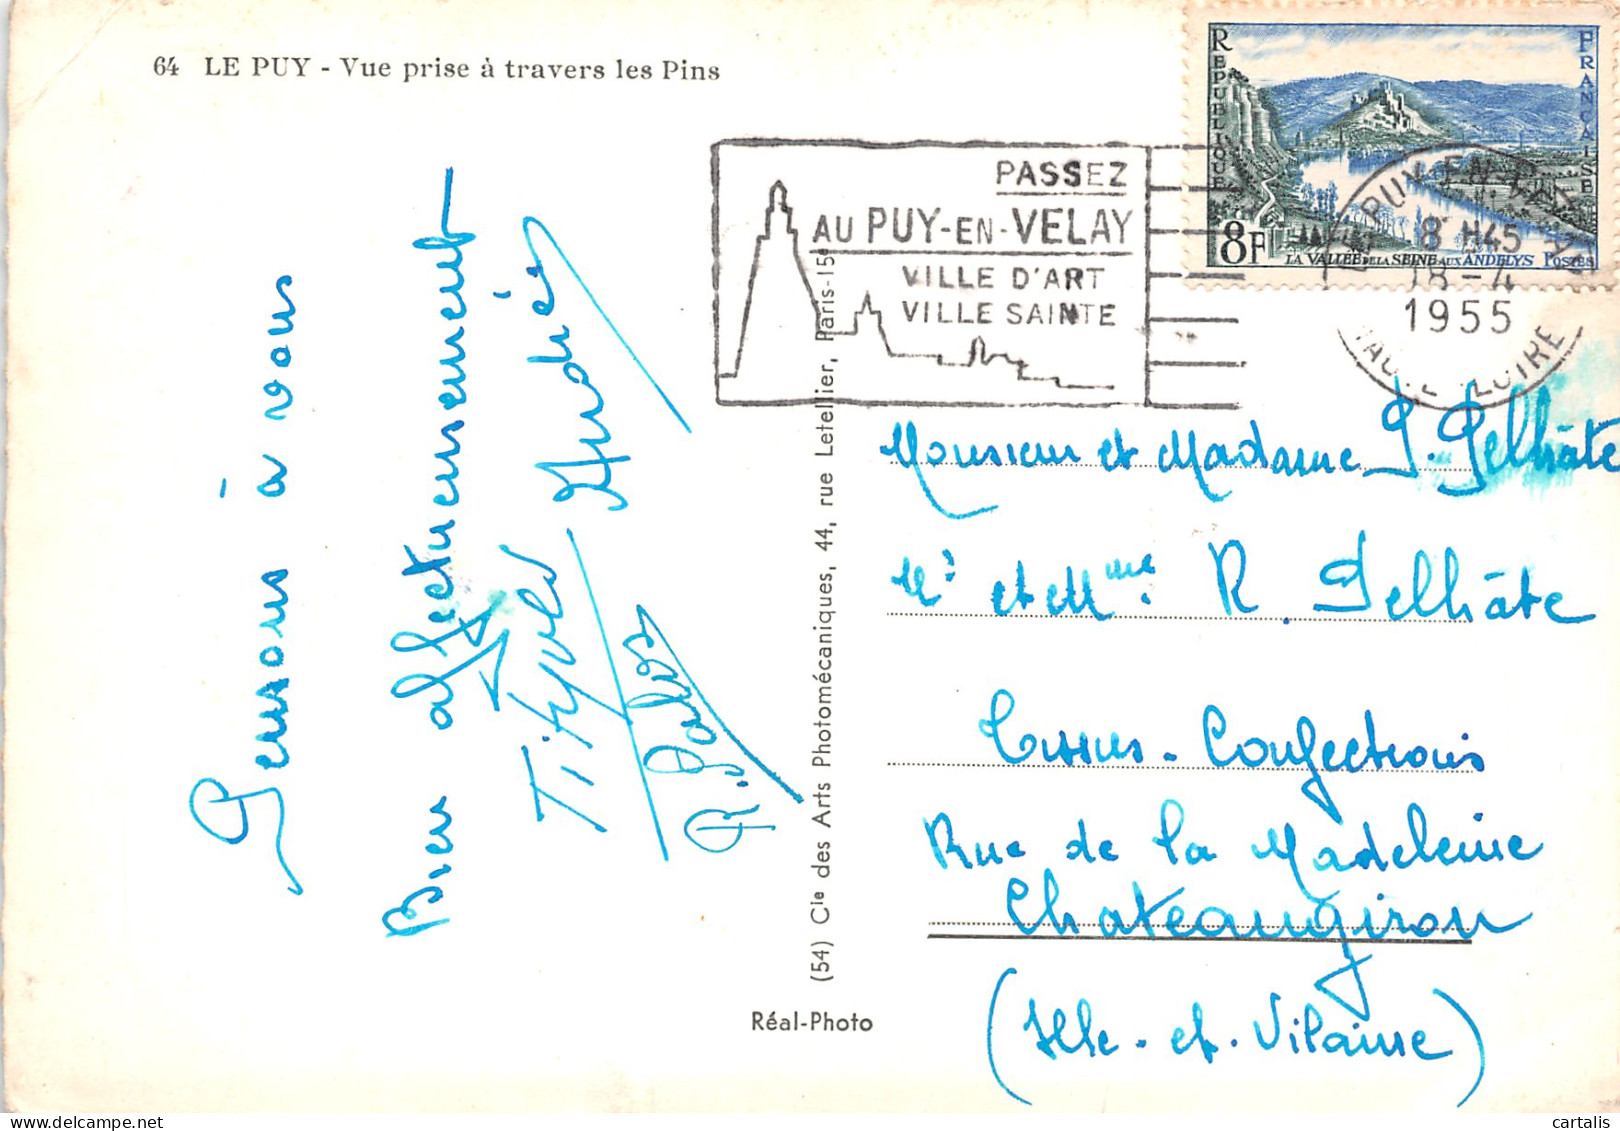 64 LE PUY - Vue prise à travers les Pins
RÉPUBLIQUE
FRANÇAISE
8F
LA VALLÉE DE LA SEINE AUX ANDELYS POSTES
PASSEZ
AU PUY-EN-VELAY
VILLE D'ART
VILLE SAINTE
LE PUY-EN-VELAY
8 H45
18-4
1955
HAUTE LOIRE
Pensons à vous
Bien affectueusement
Andrée
R.
(54) Cie des Arts Photomécaniques, 44, rue Letellier, Paris-15e
Réal-Photo
Monsieur et Madame P. Pelhâte
Mr et Mme. R. Pelhâte
Tissus - Confections
Rue de la Madeleine
Chateaugiron
(Ille-et-Vilaine)
cartalis
delcampe.net